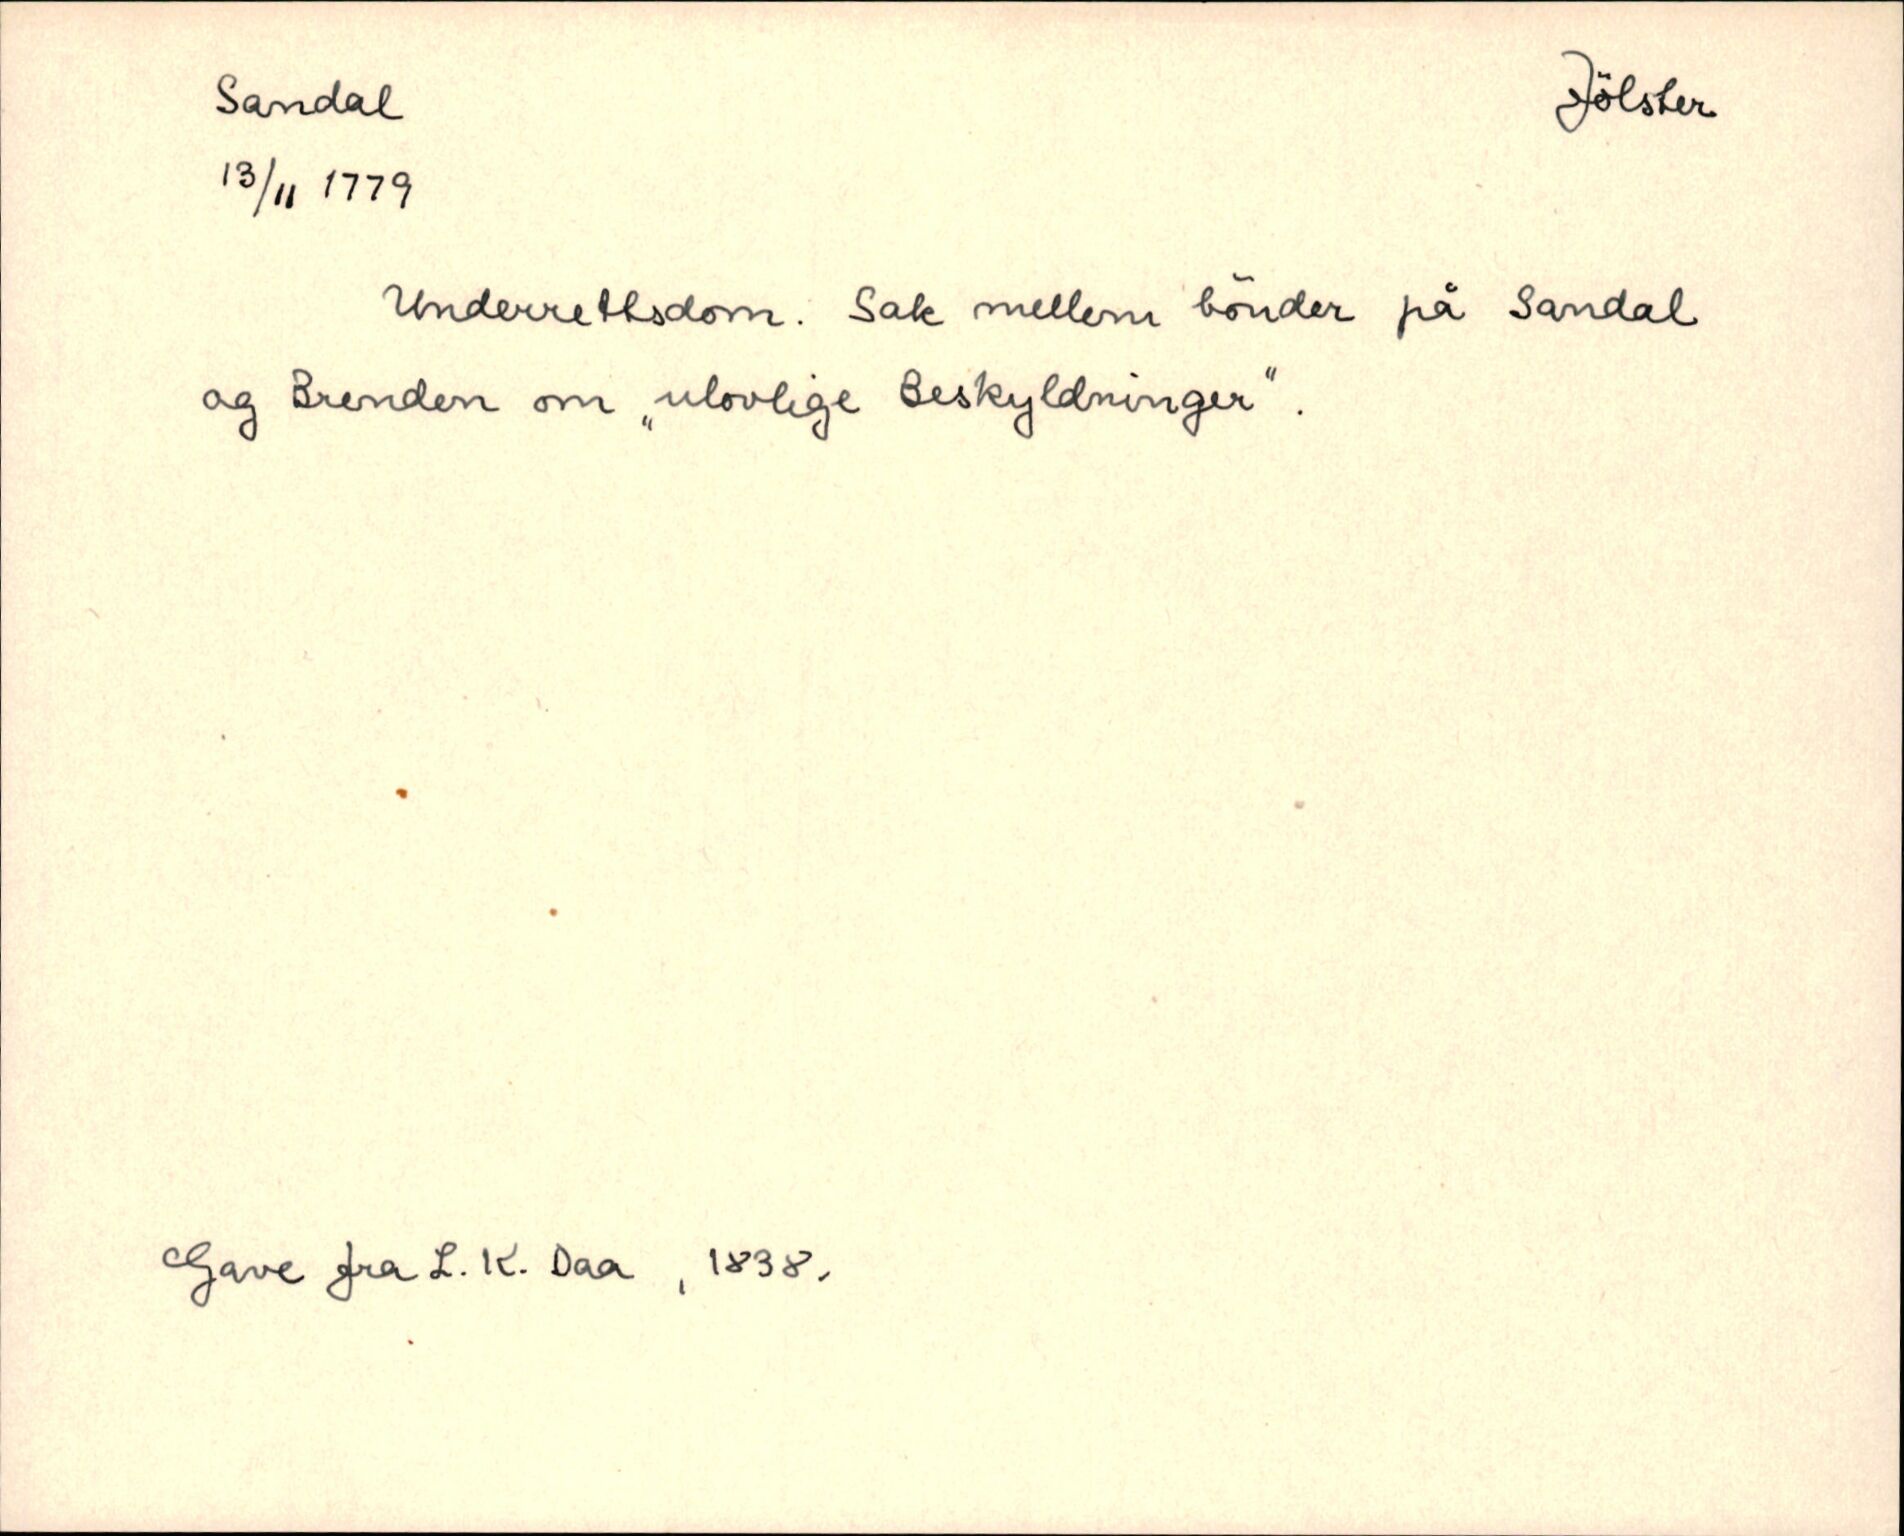 Sandal
Jölster
13/11 1779
Underrettsdom. Sak mellem bönder på Sandal
og Brenden om „ulovlige Beskyldninger“.
Gave fra L. K. Daa , 1838.